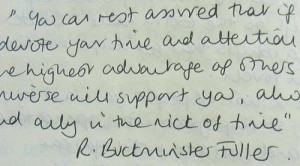 " You can rest assured that if
devote your time and attention
he highest advantage of others
niverse will support you, alw
nd only in the nick of time"
R. Buckminster Fuller